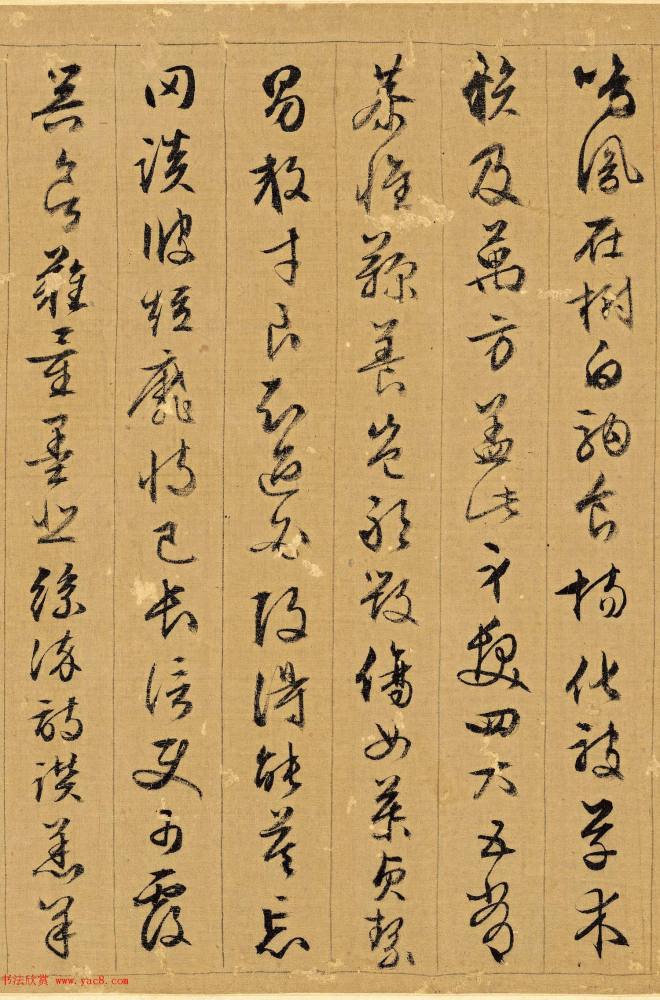 鳴鳳在樹白駒食場化被草木
賴及萬方蓋此身髮四大五常
恭惟鞠養豈敢毀傷女慕貞絜
男效才良知過必改得能莫忘
罔談彼短靡恃己長信使可覆
器欲難量墨悲絲染詩讚羔羊
书法欣赏 www.yac8.com